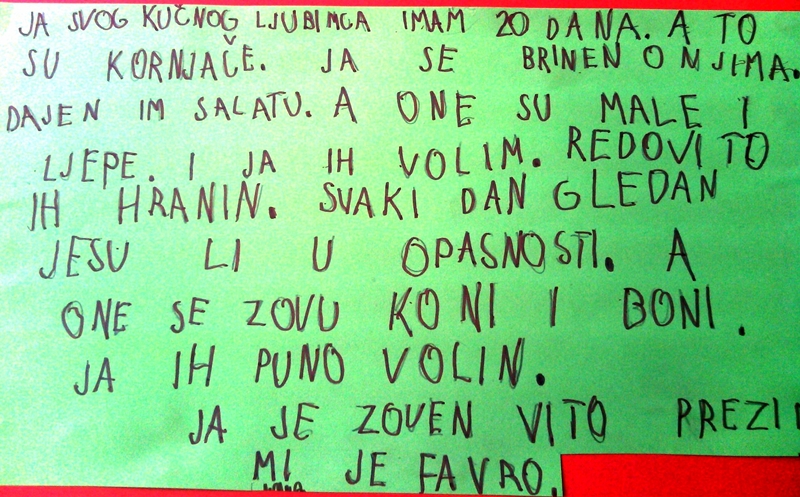 JA SVOG KUČNOG LJUBIMCA IMAM 20 DANA. A TO
SU KORNJAČE. JA SE BRINEN O NJIMA.
DAJEN IM SALATU. A ONE SU MALE I
LJEPE. I JA IH VOLIM. REDOVITO
IH HRANIN. SVAKI DAN GLEDAN
JESU LI U OPASNOSTI. A
ONE SE ZOVU KONI I BONI.
JA IH PUNO VOLIN.
JA JE ZOVEN VITO PREZI
MI JE FAVRO.